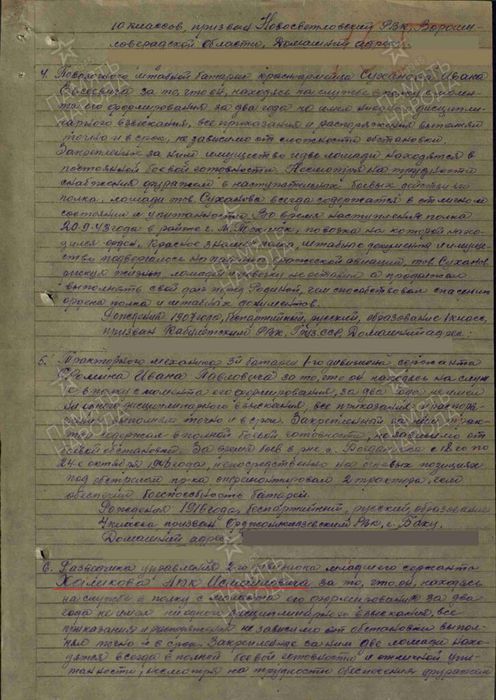 10 классов, призван Новосветловский РВК, Вороши-
ловоградской области, Домашний адрес:
4. Повозочного штабной батареи красноармейца Суханова Ивана
за то, что он, находясь на службе в полку с момен-
та его формирования за два года не имел ни одного дисципли-
нарного взыскания, все приказания и распоряжения выполнял
точно и в срок, не зависимо от сложности обстановки.
Закрепленное за ним имущество и две лошади находятся в
постоянной боевой готовности. Несмотря на трудности
снабжения фуражом в наступательных боевых действиях
полка, лошади тов. Суханова всегда содержатся в отличном
состоянии и упитанности. Во время наступления полка
20.9.43 года в районе г. М. Токмак, повозка на которой нахо-
дился орден Красное знамя полка, штабные документы и имуще-
ство подверглась нападению вражеской авиации, тов. Суханов
рискуя жизнью, лошадей и повозки не оставил, а продолжал
выполнять свой долг перед Родиной, чем способствовал спасению
ордена полка и штабных документов.
Рождения 1907 года, беспартийный, русский, образование 1 класс,
призван РВК, Груз. ССР, Домашний адрес:
5. Тракторного механика 3й батареи 1-го дивизиона сержанта
Ивана Павловича за то, что он находясь на служ-
бе в полку с момента его формирования, за два года не имел
ни одного дисциплинарного взыскания, все приказания и распоря-
жения выполнял точно и в срок. Закрепленный за ним трак-
тор содержал в полной боевой готовности, не зависимо от
обстановки. За время боев в р-не с. с 18 го по
24 е октября 1943 года, непосредственно на огневых позициях
под обстрелом пр-ка отремонтировал 2 трактора, чем
обеспечил боеспособность батареи.
Рождения 1916 года, беспартийный, русский, образование
4 класса призван Орджоникидзевский РВК, г. Баку.
Домашний адрес:
6. Разведчика управления 2-го дивизиона младшего сержанта
Халикова за то, что он, находясь
на службе в полку с момента его формирования за два
года не имел ни одного дисциплинарного взыскания, все
приказания и распоряжения не зависимо от обстановки выпол-
нял точно и в срок. Закрепленные за ним две лошади нахо-
дятся всегда в полной боевой готовности и отличной упи-
танности, несмотря на трудности обеспечения фуражом